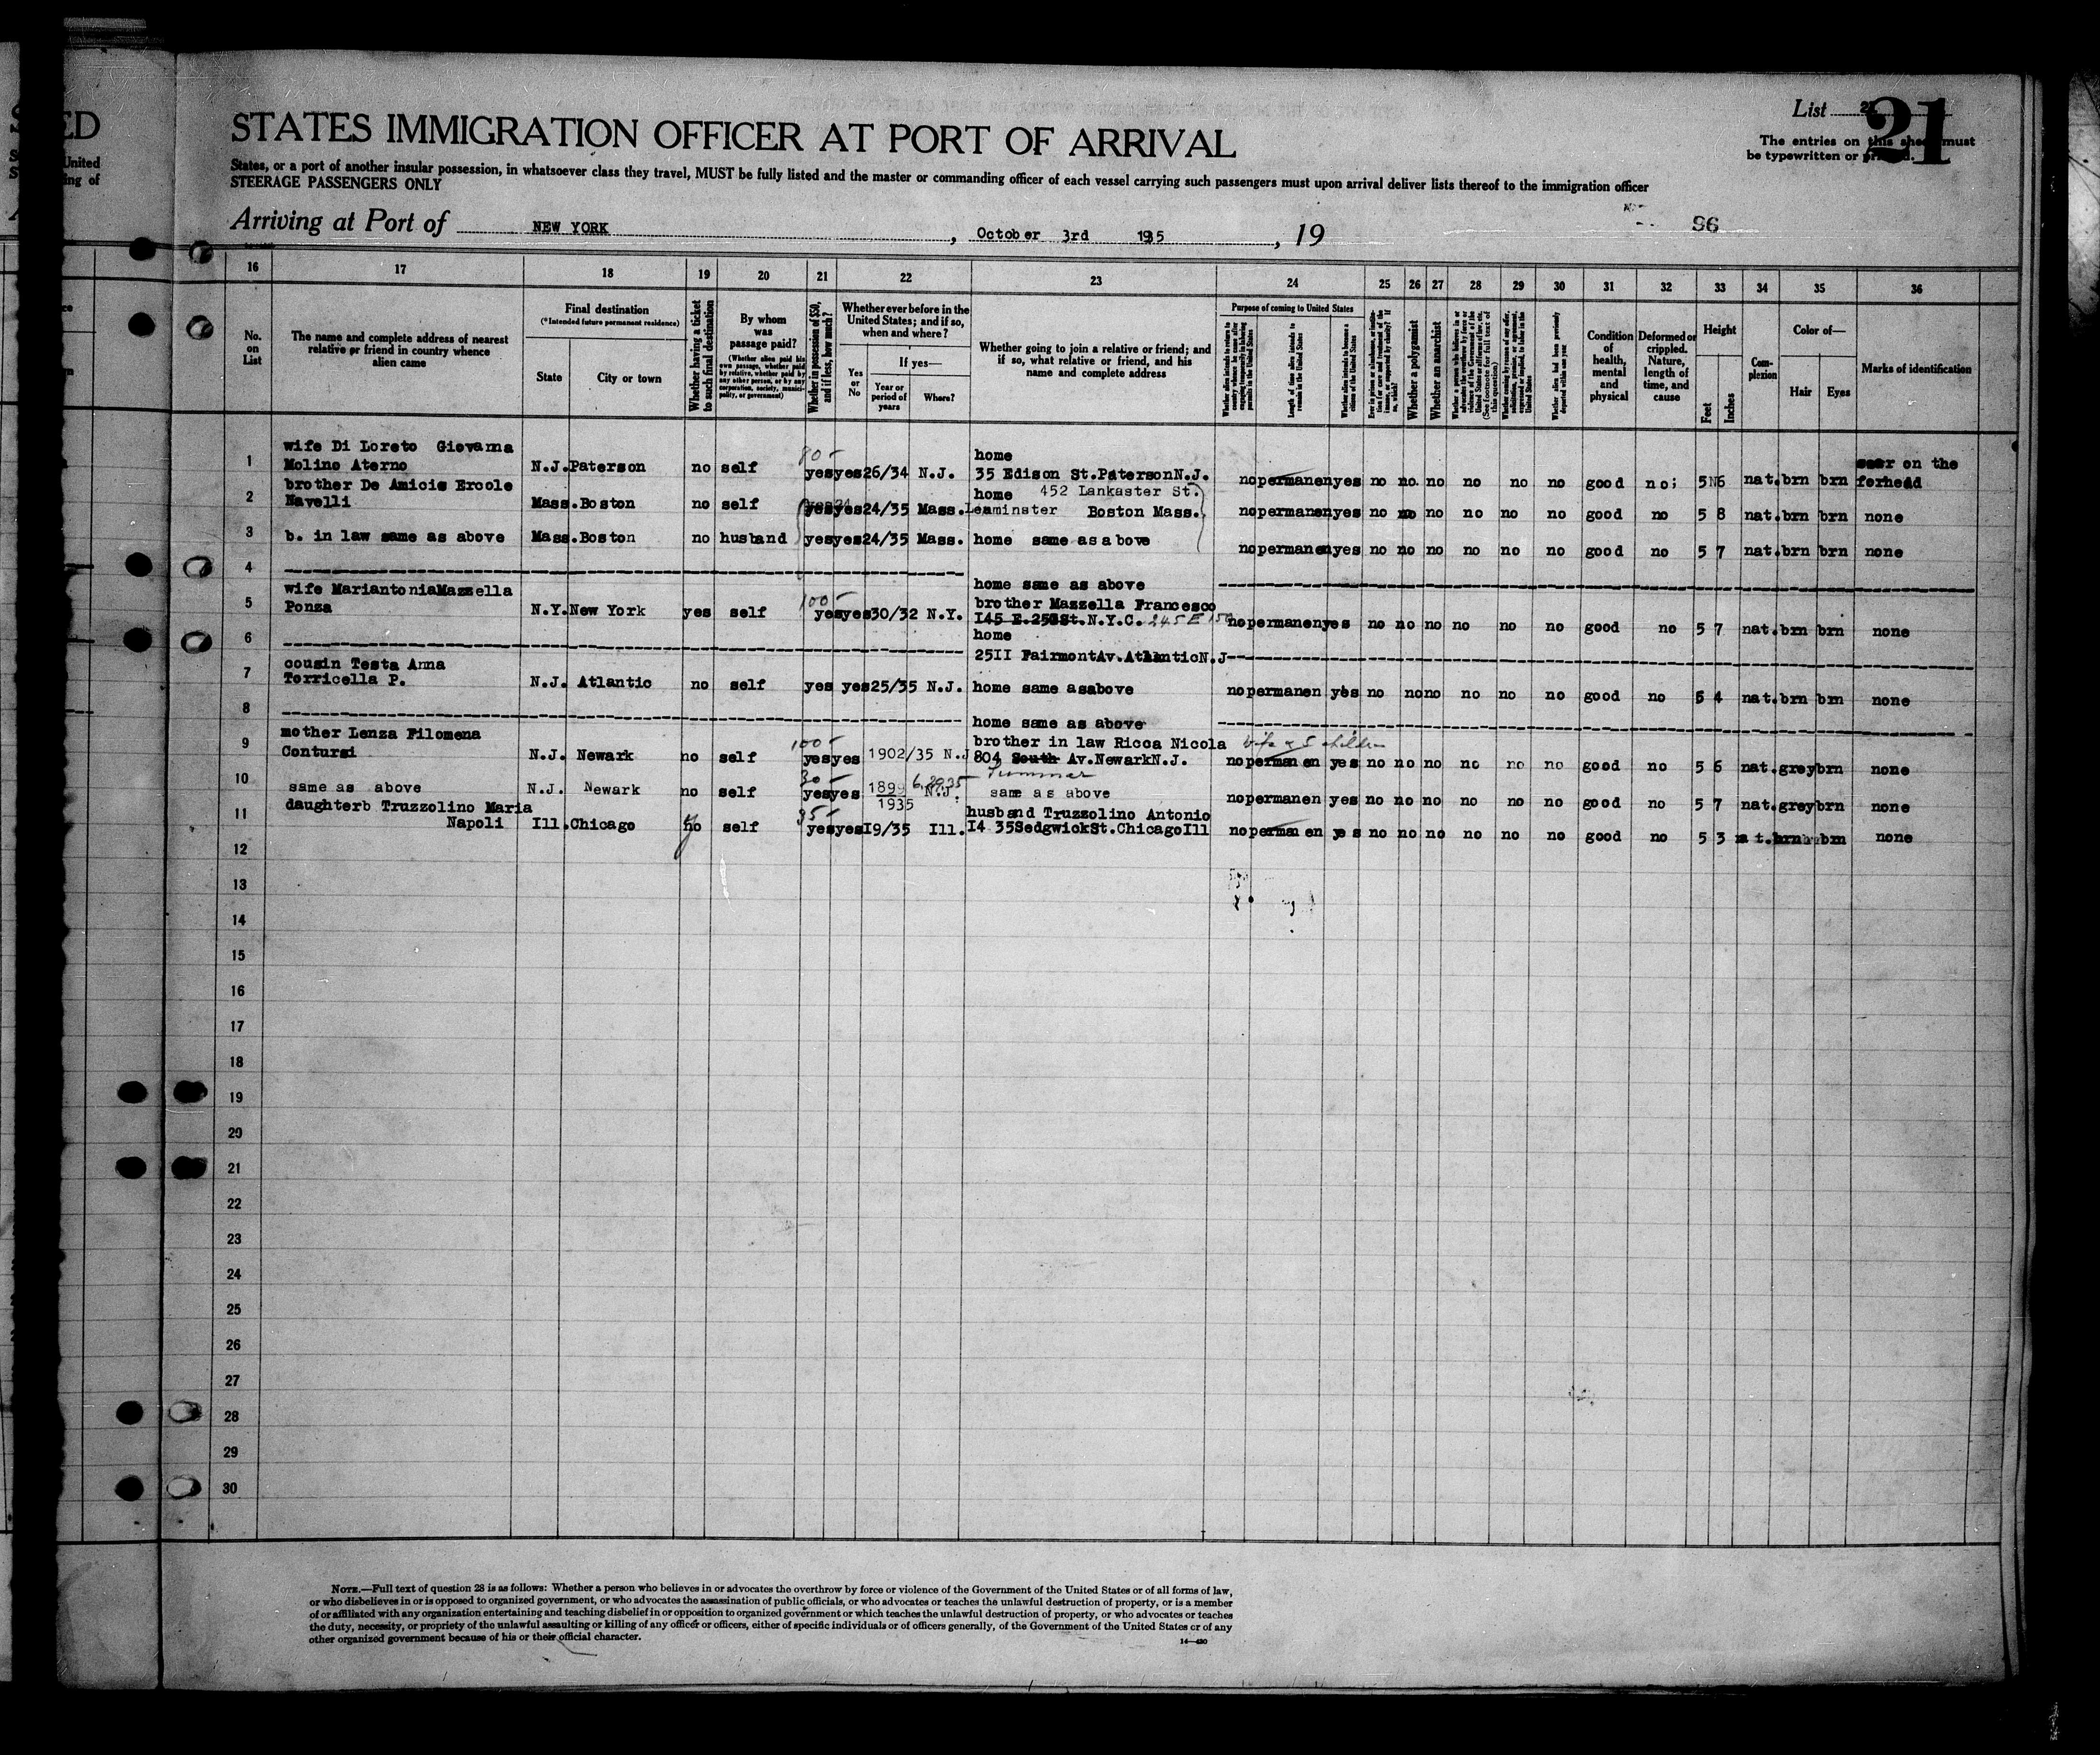 ED
United
ing of
List 21
21
The entries on this sheet must
be typewritten or printed.
STATES IMMIGRATION OFFICER AT PORT OF ARRIVAL
States, or a port of another insular possession, in whatsoever class they travel, MUST be fully listed and the master or commanding officer of each vessel carrying such passengers must upon arrival deliver lists thereof to the immigration officer
STEERAGE PASSENGERS ONLY
Arriving at Port of NEW YORK, October 3rd 1935, 19
96
16 17 18 19 20 21 22 23 24 25 26 27 28 29 30 31 32 33 34 35 36
No. on List
The name and complete address of nearest relative or friend in country whence alien came
Final destination
(*Intended future permanent residence)
State
City or town
Whether having a ticket to such final destination
By whom was passage paid?
(Whether alien paid his own passage, whether paid by relative, whether paid by any other person, or by any corporation, society, municipality, or government)
Whether in possession of $50, and if less, how much?
Whether ever before in the United States; and if so, when and where?
Yes or No
If yes—
Year or period of years
Where?
Whether going to join a relative or friend; and if so, what relative or friend, and his name and complete address
Purpose of coming to United States
Length of time alien intends to remain in the United States
Whether alien intends to become a citizen of the United States
Whether a polygamist
Whether an anarchist
Condition of health, mental and physical
Deformed or crippled. Nature, length of time, and cause
Height
Feet
Inches
Complexion
Color of—
Hair
Eyes
Marks of identification
wife Di Loreto Giovanna home
1 Molino Aterno N.J. Paterson no self 80- yes yes 26/34 N.J. 35 Edison St. Paterson N.J. no permanen yes no no. no no no no good no; 5 6 nat. brn brn scar on the forhead
brother De Amicis Ercole home 452 Lankaster St.
2 Navelli Mass. Boston no self yes yes 24/35 Mass. Leaminster Boston Mass. no permanen yes no no no no no no good no 5 8 nat. brn brn none
3 b. in law same as above Mass. Boston no husband yes yes 24/35 Mass. home same as above no permanen yes no no no no no no good no 5 7 nat. brn brn none
4 home same as above
wife Mariantonia Mazzella brother Mazzella Francesco
5 Ponza N.Y. New York yes self 100- yes yes 30/32 N.Y. I45 E. 25 St. N.Y.C. 245 E 150 no permanen yes no no no no no no good no 5 7 nat. brn brn none
home
6 25II Fairmont Av. Atlantic N.J
cousin Testa Anna
7 Torricella P. N.J. Atlantic no self yes yes 25/35 N.J. home same as above no permanen yes no no no no no no good no 5 4 nat. brn brn none
8 home same as above
mother Lenza Filomena brother in law Ricca Nicola wife & 5 children
9 Contursi N.J. Newark no self 100- yes yes 1902/35 N.J 804 South Av. Newark N.J. no permanen yes no no no no no no good no 5 6 nat. grey brn none
Summer
10 same as above N.J. Newark no self 30- yes yes 1899 1935 N.J. same as above no permanen yes no no no no no no good no 5 7 nat. grey brn none
daughterb Truzzolino Maria husband Truzzolino Antonio
11 Napoli Ill. Chicago no self 35- yes yes I9/35 Ill. I4 35 Sedgwick St. Chicago Ill no permanen yes no no no no no no good no 5 3 nat. brn brn none
12
13
14
15
16
17
18
19
20
21
22
23
24
25
26
27
28
29
30
NOTE.—Full text of question 28 is as follows: Whether a person who believes in or advocates the overthrow by force or violence of the Government of the United States or of all forms of law,
or who disbelieves in or is opposed to organized government, or who advocates the assassination of public officials, or who advocates or teaches the unlawful destruction of property, or is a member
of or affiliated with any organization entertaining and teaching disbelief in or opposition to organized government or which teaches the unlawful destruction of property, or who advocates or teaches
the duty, necessity, or propriety of the unlawful assaulting or killing of any officer or officers, either of specific individuals or of officers generally, of the Government of the United States or of any
other organized government because of his or their official character.
14—430